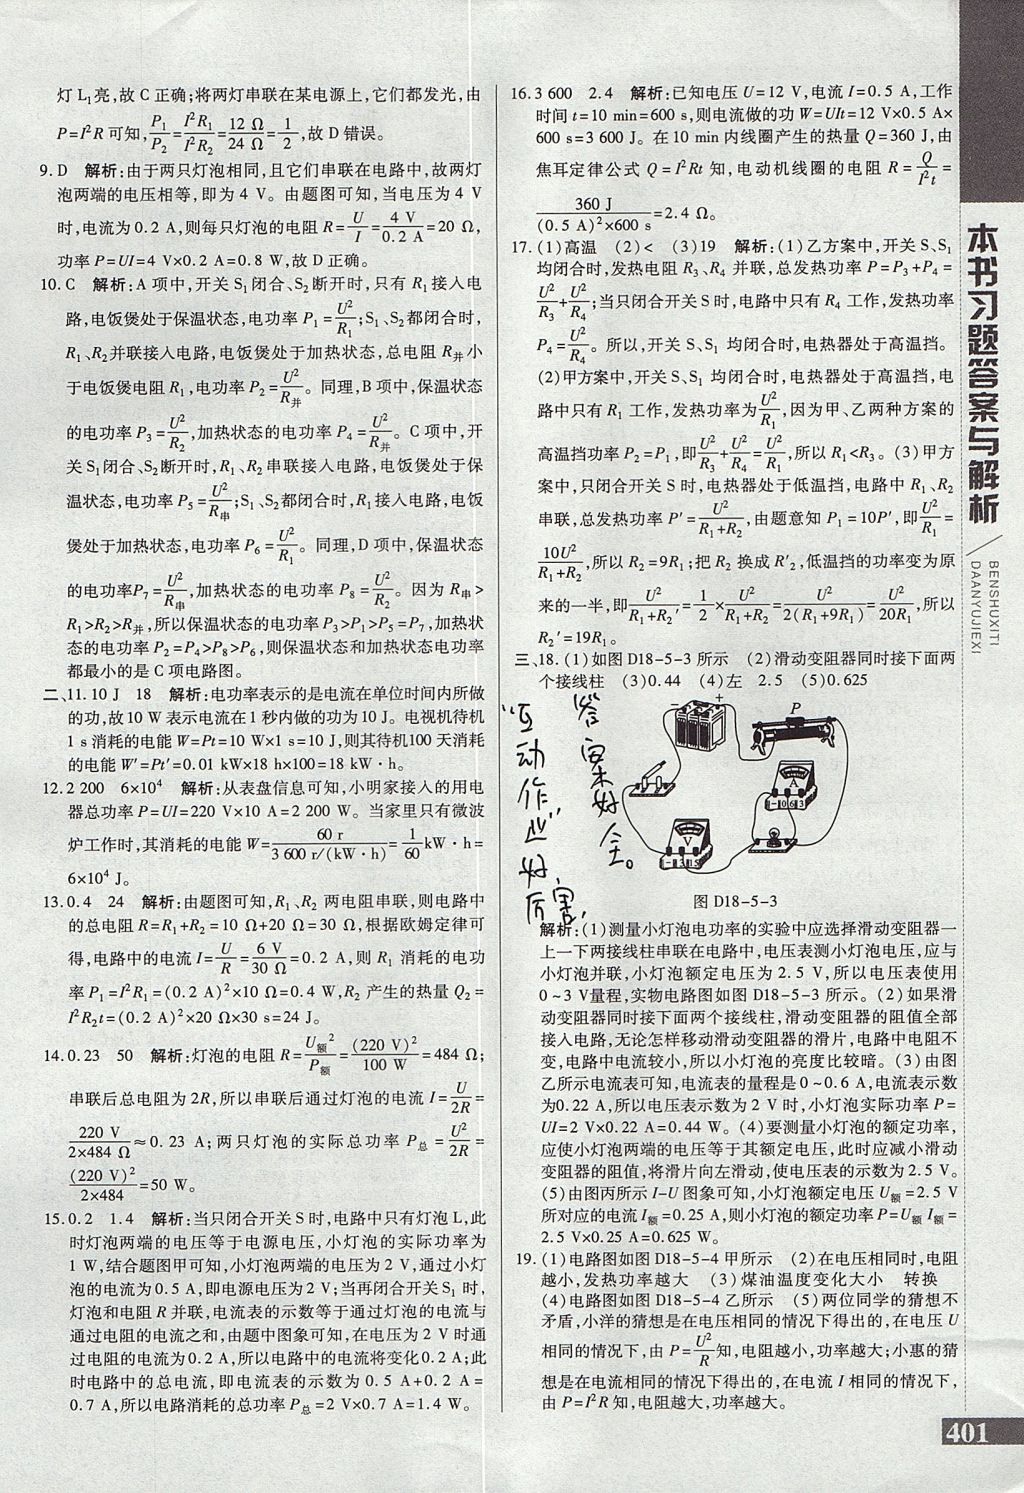 灯 L₁亮,故 C 正确;将两灯串联在某电源上,它们都发光,由
P=I²R 可知,P₁/P₂=I²R₁/I²R₂=12 Ω/24 Ω=1/2,故 D 错误。
9. D　解析:由于两只灯泡相同,且它们串联在电路中,故两灯
泡两端的电压相等,即为 4 V。由题图可知,当电压为 4 V
时,电流为 0.2 A,则每只灯泡的电阻 R=U/I=4 V/0.2 A=20 Ω,
功率 P=UI=4 V×0.2 A=0.8 W,故 D 正确。
10. C　解析:A 项中,开关 S₁闭合、S₂断开时,只有 R₁接入电
路,电饭煲处于保温状态,电功率 P₁=U²/R₁;S₁、S₂都闭合时,
R₁、R₂并联接入电路,电饭煲处于加热状态,总电阻 R并小
于电饭煲电阻 R₁,电功率 P₂=U²/R并。同理,B 项中,保温状态
的电功率 P₃=U²/R₂,加热状态的电功率 P₄=U²/R并。C 项中,开
关 S₁闭合、S₂断开时,R₁、R₂串联接入电路,电饭煲处于保
温状态,电功率 P₅=U²/R串;S₁、S₂都闭合时,R₁接入电路,电饭
煲处于加热状态,电功率 P₆=U²/R₁。同理,D 项中,保温状态
的电功率P₇=U²/R串,加热状态的电功率 P₈=U²/R₂。因为 R串>
R₁>R₂>R并,所以保温状态的电功率 P₃>P₁>P₅=P₇,加热状
态的电功率 P₂=P₄>P₈>P₆,则保温状态和加热状态电功率
都最小的是 C 项电路图。
二、11. 10 J　18　解析:电功率表示的是电流在单位时间内所做
的功,故 10 W 表示电流在 1 秒内做的功为 10 J。电视机待机
1 s 消耗的电能 W=Pt=10 W×1 s=10 J,则其待机100 天消耗
的电能 W′=Pt′=0.01 kW×18 h×100=18 kW·h。
12. 2 200　6×10⁴　解析:从表盘信息可知,小明家接入的用电
器总功率 P=UI=220 V×10 A=2 200 W。当家里只有微波
炉工作时,其消耗的电能 W=60 r/3 600 r/(kW·h)=1/60 kW·h=
6×10⁴ J。
13. 0.4　24　解析:由题图可知,R₁、R₂ 两电阻串联,则电路中
的总电阻 R=R₁+R₂=10 Ω+20 Ω=30 Ω,根据欧姆定律可
得,电路中的电流 I=U/R=6 V/30 Ω=0.2 A,则 R₁ 消耗的电功
率 P₁=I²R₁=(0.2 A)²×10 Ω=0.4 W,R₂ 产生的热量 Q₂=
I²R₂t=(0.2 A)²×20 Ω×30 s=24 J。
14. 0.23　50　解析:灯泡的电阻 R=U额²/P额=(220 V)²/100 W=484 Ω;
串联后总电阻为 2R,所以串联后通过灯泡的电流 I=U/2R=
220 V/2×484 Ω≈0.23 A;两只灯泡的实际总功率 P总=U²/2R=
(220 V)²/2×484=50 W。
15. 0.2　1.4　解析:当只闭合开关 S 时,电路中只有灯泡 L,此
时灯泡两端的电压等于电源电压,小灯泡的实际功率为
1 W,结合题图甲可知,小灯泡两端的电压为 2 V,通过小灯
泡的电流为 0.5 A,即电源电压为 2 V;当再闭合开关 S₁ 时,
灯泡和电阻 R 并联,电流表的示数等于通过灯泡的电流与
通过电阻的电流之和,由题中图象可知,在电压为 2 V 时通
过电阻的电流为 0.2 A,所以电路中的电流将变化0.2 A;此
时电路中的总电流,即电流表的示数为 0.5 A+0.2 A=
0.7 A,所以电路消耗的总功率 P总=2 V×0.7 A=1.4 W。
16. 3 600　2.4　解析:已知电压 U=12 V,电流 I=0.5 A,工作
时间 t=10 min=600 s,则电流做的功 W=UIt=12 V×0.5 A×
600 s=3 600 J。在 10 min 内线圈产生的热量 Q=360 J,由
焦耳定律公式 Q=I²Rt 知,电动机线圈的电阻 R=Q/I²t=
360 J/(0.5 A)²×600 s=2.4 Ω。
17. (1)高温　(2)<　(3)19　解析:(1)乙方案中,开关 S、S₁
均闭合时,发热电阻 R₃、R₄ 并联,总发热功率 P=P₃+P₄=
U²/R₃+U²/R₄;当只闭合开关 S 时,电路中只有 R₄ 工作,发热功率
P₄=U²/R₄。所以,开关 S、S₁ 均闭合时,电热器处于高温挡。
(2)甲方案中,开关 S、S₁ 均闭合时,电热器处于高温挡,电
路中只有 R₁ 工作,发热功率为U²/R₁,因为甲、乙两种方案的
高温挡功率 P₂=P₁,即U²/R₃+U²/R₄=U²/R₁,所以 R₁<R₃。(3)甲方
案中,只闭合开关 S 时,电热器处于低温挡,电路中 R₁、R₂
串联,总发热功率 P′=U²/R₁+R₂,由题意知 P₁=10P′,即U²/R₁=
10U²/R₁+R₂,所以 R₂=9R₁;把 R₂ 换成 R′₂,低温挡的功率变为原
来的一半,即U²/R₁+R₂′=1/2×U²/R₁+R₂=U²/2(R₁+9R₁)=U²/20R₁,所以
R₂′=19R₁。
三、18. (1)如图 D18-5-3 所示　(2)滑动变阻器同时接下面两
个接线柱　(3)0.44　(4)左　2.5　(5)0.625
“互动作业”好厉害,
答案好全。
- +
P
A
-0.6 3
V
-3 15
图 D18-5-3
解析:(1)测量小灯泡电功率的实验中应选择滑动变阻器一
上一下两接线柱串联在电路中,电压表测小灯泡电压,应与
小灯泡并联,小灯泡额定电压为 2.5 V,所以电压表使用
0~3 V量程,实物电路图如图 D18-5-3 所示。(2)如果滑
动变阻器同时接下面两个接线柱,滑动变阻器的阻值全部
接入电路,无论怎样移动滑动变阻器的滑片,电路中电阻不
变,电路中电流较小,所以小灯泡的亮度比较暗。(3)由图
乙所示电流表可知,电流表的量程是 0~0.6 A,电流表示数
为0.22 A,所以电压表示数为 2 V 时,小灯泡实际功率 P=
UI=2 V×0.22 A=0.44 W。(4)要测量小灯泡的额定功率,
应使小灯泡两端的电压等于其额定电压,此时应减小滑动
变阻器的阻值,将滑片向左滑动,使电压表的示数为 2.5 V。
(5)由图丙所示 I-U 图象可知,小灯泡额定电压 U额=2.5 V
所对应的电流 I额=0.25 A,则小灯泡的额定功率P=U额 I额=
2.5 V×0.25 A=0.625 W。
19. (1)电路图如图 D18-5-4 甲所示　(2)在电压相同时,电阻
越小,发热功率越大　(3)煤油温度变化大小　转换
(4)电路图如图 D18-5-4 乙所示　(5)两位同学的猜想不
矛盾,小洋的猜想是在电压相同的情况下得出的,在电压 U
相同的情况下,由 P=U²/R知,电阻越小,功率越大;小惠的猜
想是在电流相同的情况下得出的,在电流 I 相同的情况下,
由 P=I²R 知,电阻越大,功率越大。
本书习题答案与解析
BENSHUXITI
DAANYUJIEXI
401